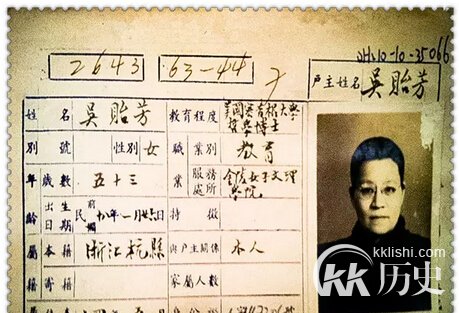 2643
63-44
JH.10-10-35066
戶主姓名 吳貽芳
姓名 吳貽芳 教育程度 美國密吉根大學
哲學博士
別號 性別 女 職業 業別 教育
年齡 歲數 五十三 服務處所 金陵女子文理
學院
出生日期 民前 年一月 日 特徵
屬籍 本籍 浙江杭縣 與戶主關係 本人
寄籍 家屬人數
kklishi.com
KK历史